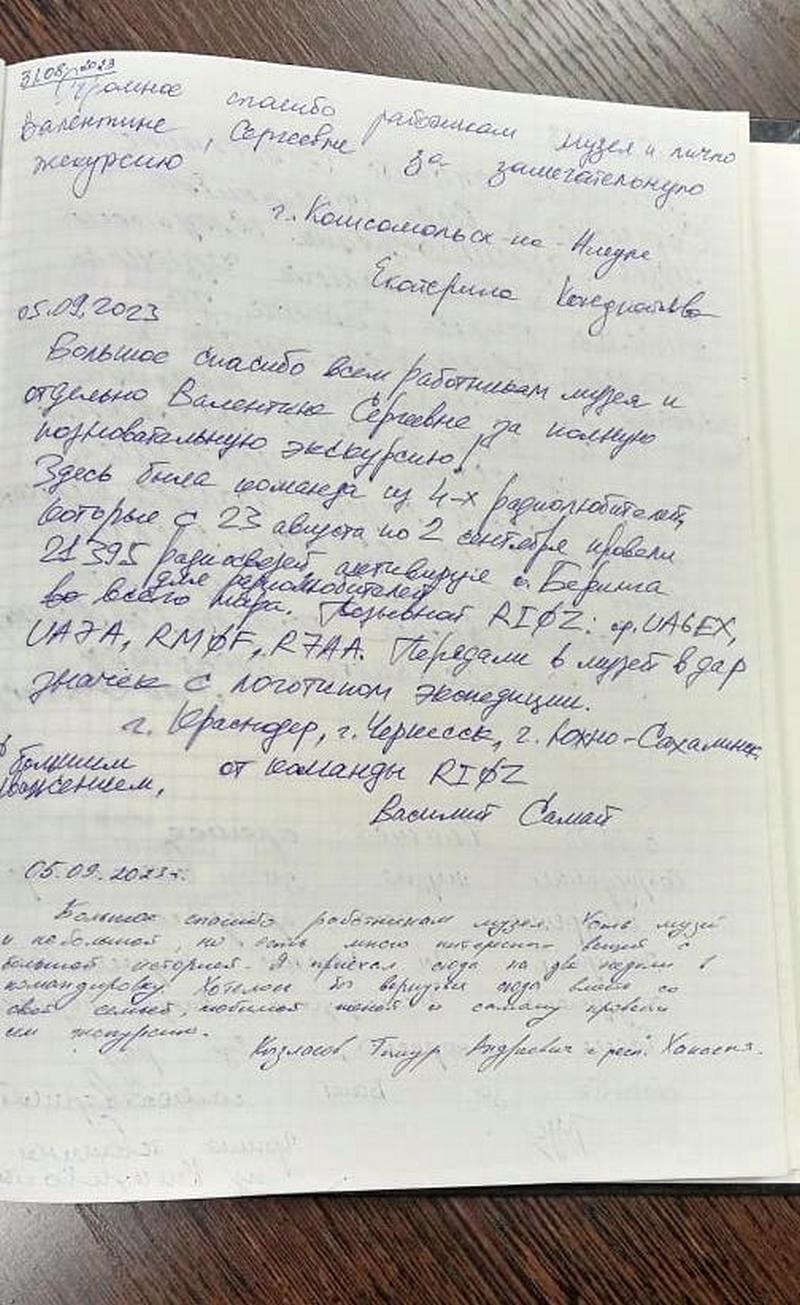 31.08.2023
Огромное спасибо работникам музея и лично
Валентине Сергеевне за замечательную
экскурсию
г. Комсомольск-на-Амуре
Екатерина Кондратьева
05.09.2023
Большое спасибо всем работникам музея и
отдельно Валентине Сергеевне за полную
познавательную экскурсию!
Здесь была команда из 4-х радиолюбителей,
которые с 23 августа по 2 сентября провели
21395 радиосвязей активируя о. Беринга
для радиолюбителей
всего мира. Позывной RIØZ: ор. UA6EX,
UA7A, RMØF, R7AA. Передали в музей в дар
значек с логотипом экспедиции.
г. Краснодар, г. Черкесск, г. Южно-Сахалинск
большим
уважением, от команды RIØZ
Василий Самай
05.09.2023г.
Большое спасибо работникам музея. Хоть музей
и небольшой, но есть много интересных вещей с
большой историей. Я приехал сюда на две недели в
командировку. Хотелось бы вернуться сюда вместе со
своей семьей, любимой женой и самому провести
им экскурсию.
Козласов Тимур Андреевич с респ. Хакасия.